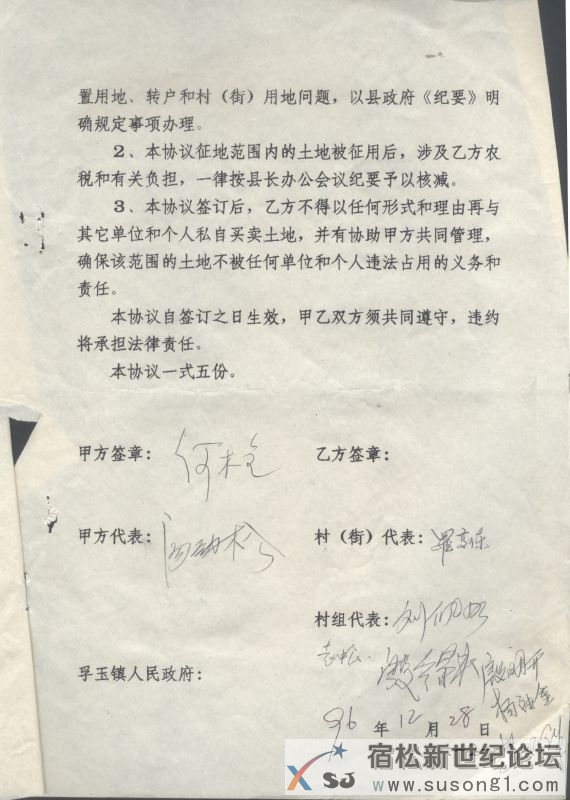 置用地、转户和村（街）用地问题，以县政府《纪要》明
确规定事项办理。
2、本协议征地范围内的土地被征用后，涉及乙方农
税和有关负担，一律按县长办公会议纪要予以核减。
3、本协议签订后，乙方不得以任何形式和理由再与
其它单位和个人私自买卖土地，并有协助甲方共同管理，
确保该范围的土地不被任何单位和个人违法占用的义务和
责任。
本协议自签订之日生效，甲乙双方须共同遵守，违约
将承担法律责任。
本协议一式五份。
甲方签章： 乙方签章：
甲方代表： 村（街）代表：
村组代表：
孚玉镇人民政府：
96 年 12 月 28 日
宿松新世纪论坛
XSJ www.susong1.com